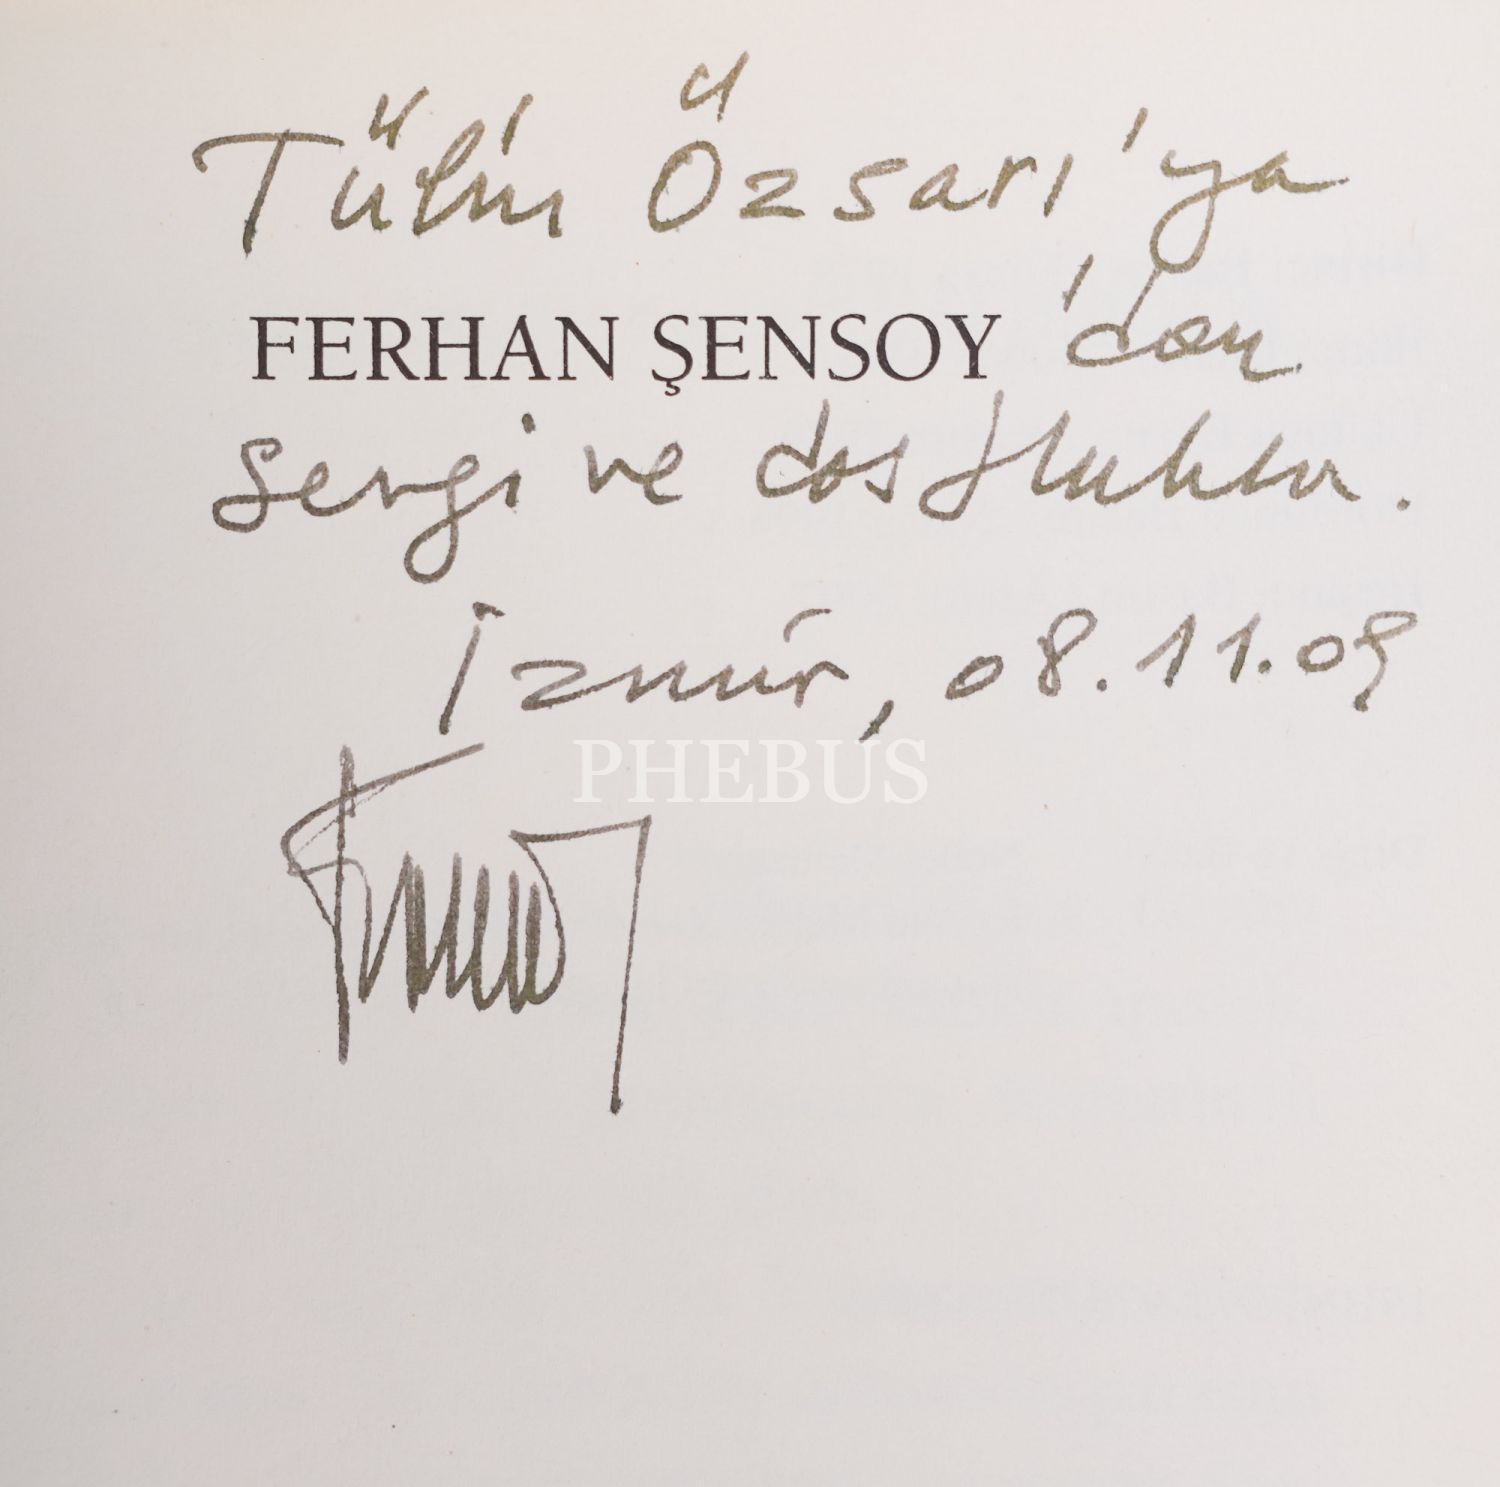 Tülin Özsarı'ya
FERHAN ŞENSOY'dan
sevgi ve dostlukla.
İzmir, 08.11.09
PHEBUS